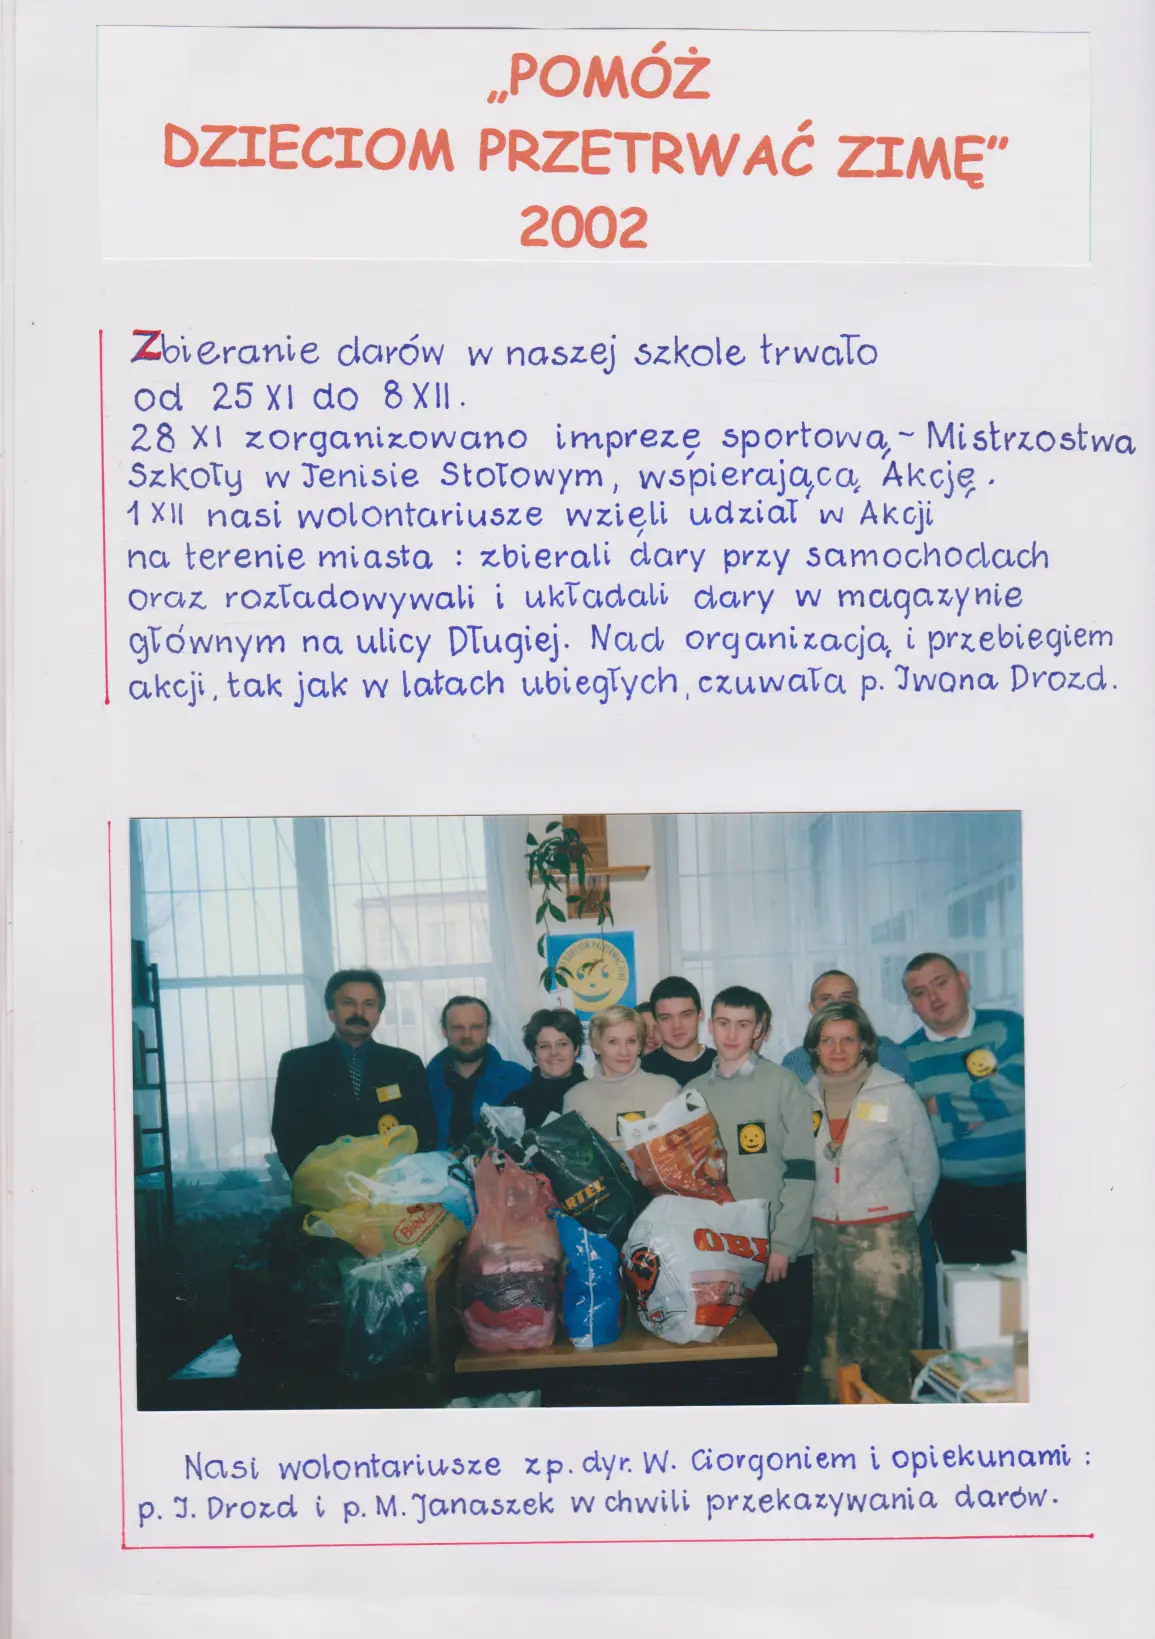 „POMÓŻ
DZIECIOM PRZETRWAĆ ZIMĘ”
2002
Zbieranie darów w naszej szkole trwało
od 25 XI do 8 XII.
28 XI zorganizowano imprezę sportową - Mistrzostwa
Szkoły w Tenisie Stołowym, wspierającą Akcję.
1 XII nasi wolontariusze wzięli udział w Akcji
na terenie miasta : zbierali dary przy samochodach
oraz rozładowywali i układali dary w magazynie
głównym na ulicy Długiej. Nad organizacją i przebiegiem
akcji, tak jak w latach ubiegłych, czuwała p. Iwona Drozd.
OBI
Nasi wolontariusze z p. dyr. W. Giorgoniem i opiekunami :
p. I. Drozd i p. M. Janaszek w chwili przekazywania darów.